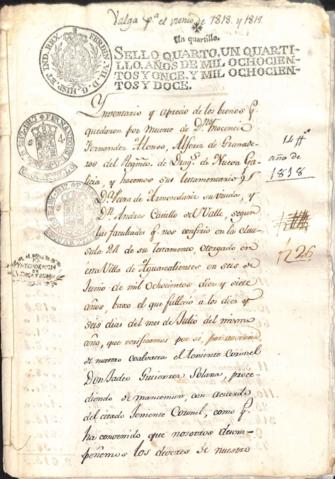 Valga p.a el vienio de 1818. y 1819.
Un quartillo.
SELLO QUARTO, UN QUARTI-
LLO, AÑOS DE MIL OCHOCIEN-
TOS Y ONCE, Y MIL OCHOCIEN-
TOS Y DOCE.
FERDIN. VII D. G. HISP. ET IND. REX
Ynventario y aprecio de los bienes q.
quedaron por muerte de D.n Inocencio
Fernandez Alonso, Alferez de Granade-
ros del Regim.to de Drag.s de Nueva Ga-
licia, y hacemos sus testamentarios
D.a Petra de Asmendariz su viuda, y
D.n Andres Castillo del Valle, segun
las facultades q. nos confirio en la clau-
sula 24 de su testamento otorgado en
esta Villa de Aguascalientes en seis de
Junio de mil ochocientos diez y siete
años, baxo el que fallecio a los diez y
seis dias del mes de Julio del mismo
año, que verificamos por si,
de nuestro coalvacea el Teniente Coronel
Don Tadeo Gutierrez Solana, proce-
diendo de mancomun con acuerdo
del citado Teniente Coronel, como q.
ha convenido que nosotros desem-
peñemos los deveres de nuestro
14
año de
1818
126